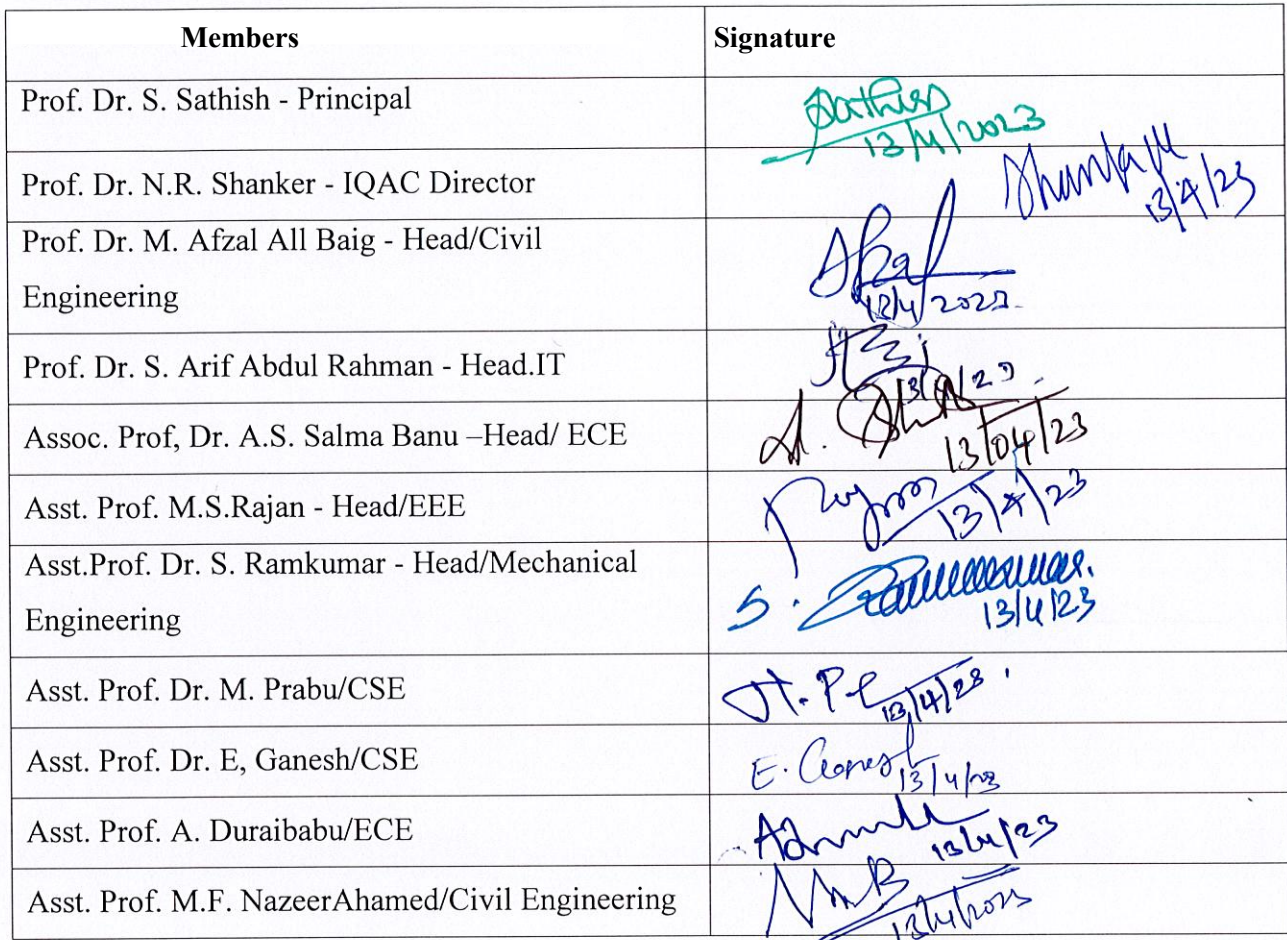 Members Signature
Prof. Dr. S. Sathish - Principal Sathish
13/4/2023
Prof. Dr. N.R. Shanker - IQAC Director
13/4/23
Prof. Dr. M. Afzal All Baig - Head/Civil
Engineering
13/4/2023
Prof. Dr. S. Arif Abdul Rahman - Head.IT
Assoc. Prof, Dr. A.S. Salma Banu –Head/ ECE
13/04/23
Asst. Prof. M.S.Rajan - Head/EEE
13/4/23
Asst.Prof. Dr. S. Ramkumar - Head/Mechanical
Engineering S.
13/4/23
Asst. Prof. Dr. M. Prabu/CSE
13/4/23
Asst. Prof. Dr. E, Ganesh/CSE E. Ganesh
13/4/23
Asst. Prof. A. Duraibabu/ECE
13/4/23
Asst. Prof. M.F. NazeerAhamed/Civil Engineering
13/4/2023